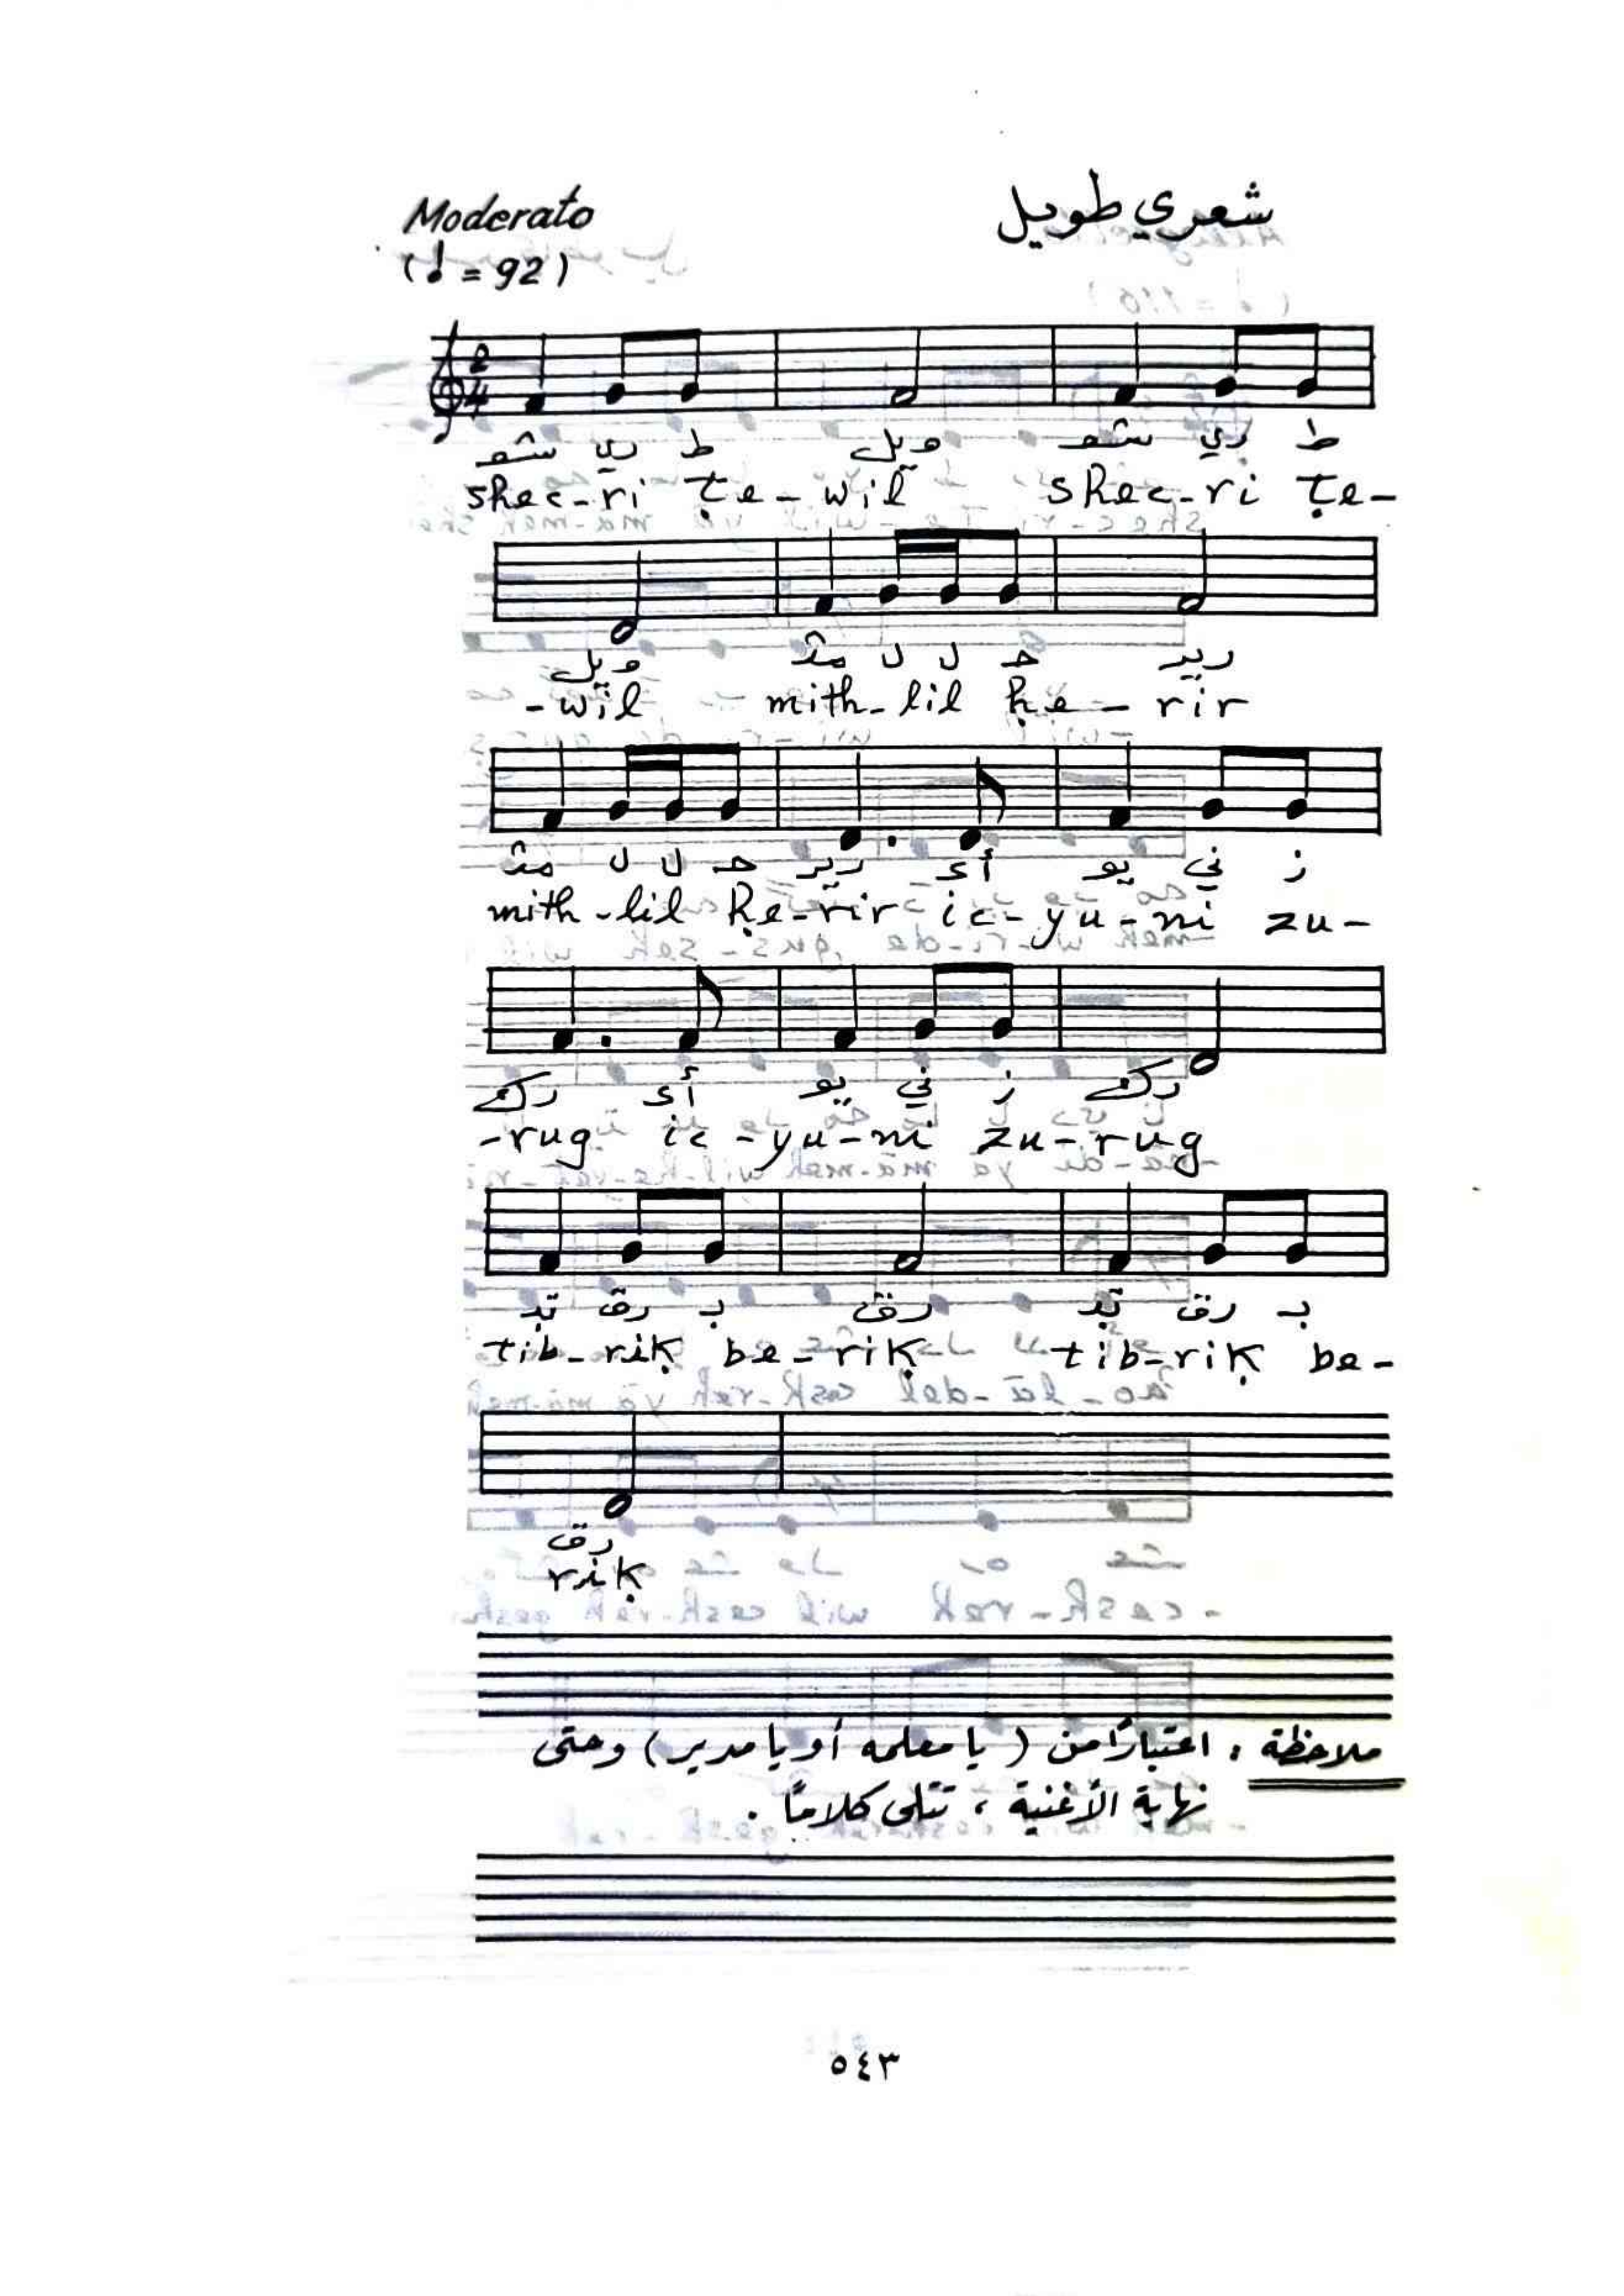 Moderato
شعري طويل
(♩ = 92)
2
4
شعـ ري ط ويل شعـ ري ط
shec-ri ṭe-wil shec-ri ṭe-
ويل مثـ ل ل حـ رير
-wil mith-lil ḥe-rir
مثـ ل ل حـ رير أعـ يو ني ز
mith-lil ḥe-rir ic-yu-ni zu-
رگ أعـ يو ني ز رگ
-rug ic-yu-ni zu-rug
تبـ رق بـ رق تبـ رق بـ
tib-riḳ be-riḳ tib-riḳ be-
رق
riḳ
ملاحظة : اعتباراً من ( يا معلمه أو يا مدير ) وحتى
نهاية الأغنية ، تتلى كلاماً .
٥٤٣